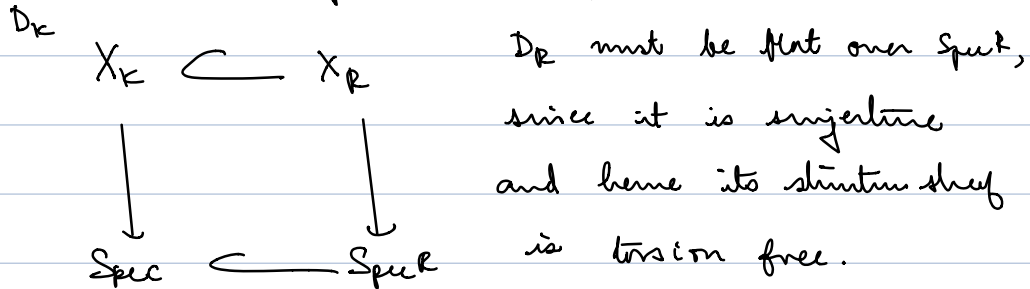 D_K
X_K ⊂ X_R D_R must be flat over Spec R,
since it is surjective
and hence its structure sheaf
Spec ⊂ Spec R is torsion free.